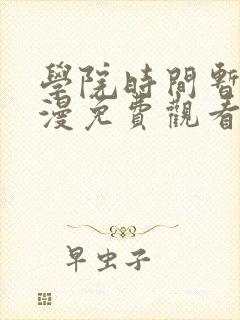 學院時間暫
漫免費觀看
早虫子